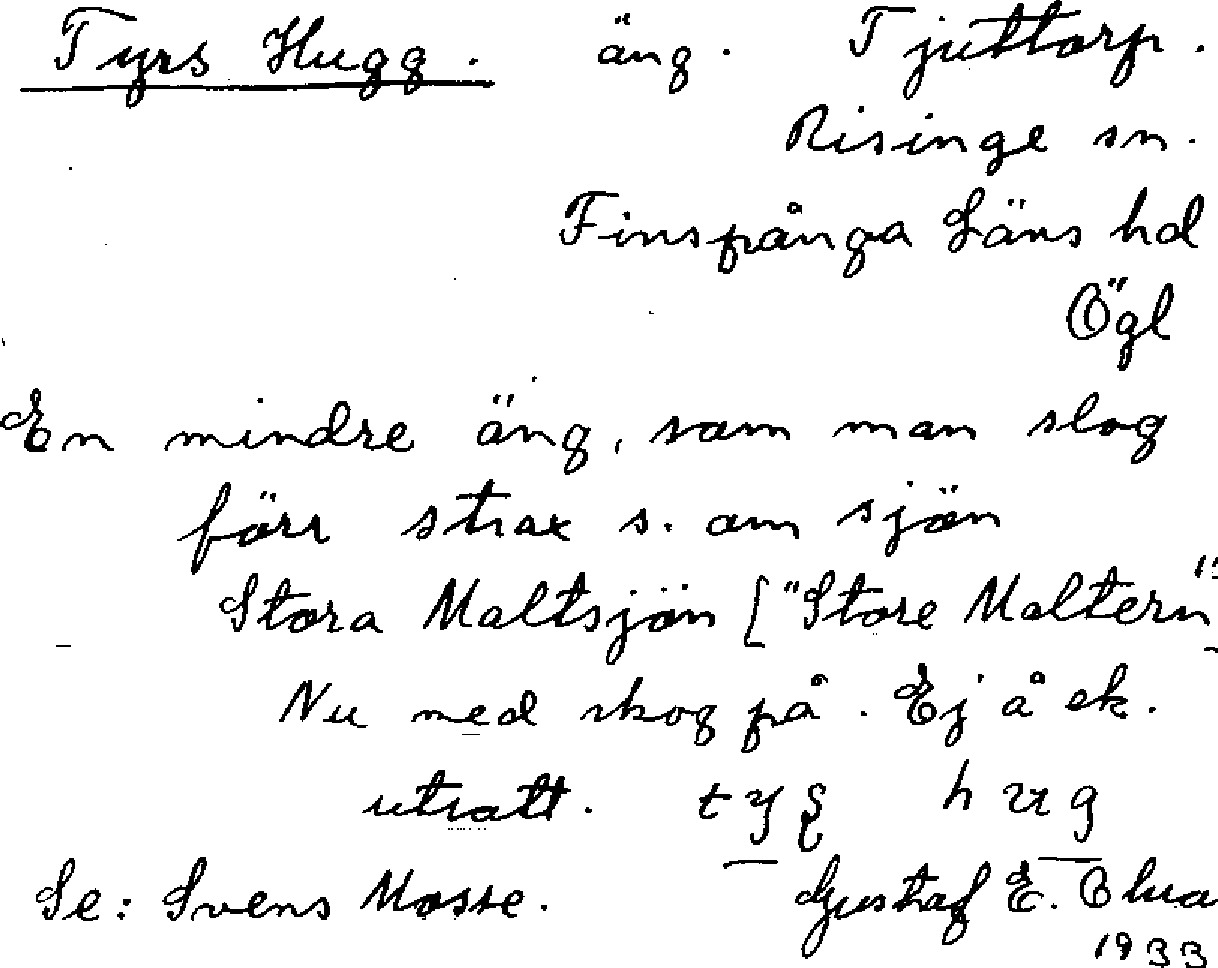 Tyrs Hugg. äng. Tjuttorp.
Risinge sn.
Finspånga Läns hd
Ögl
En mindre äng, som man slog
förr strax s. om sjön
Stora Maltsjön ["Store Maltern"]
Nu med skog på. Ej å ek.
utsatt.
Se: Svens Mosse. Gustaf E.
1933